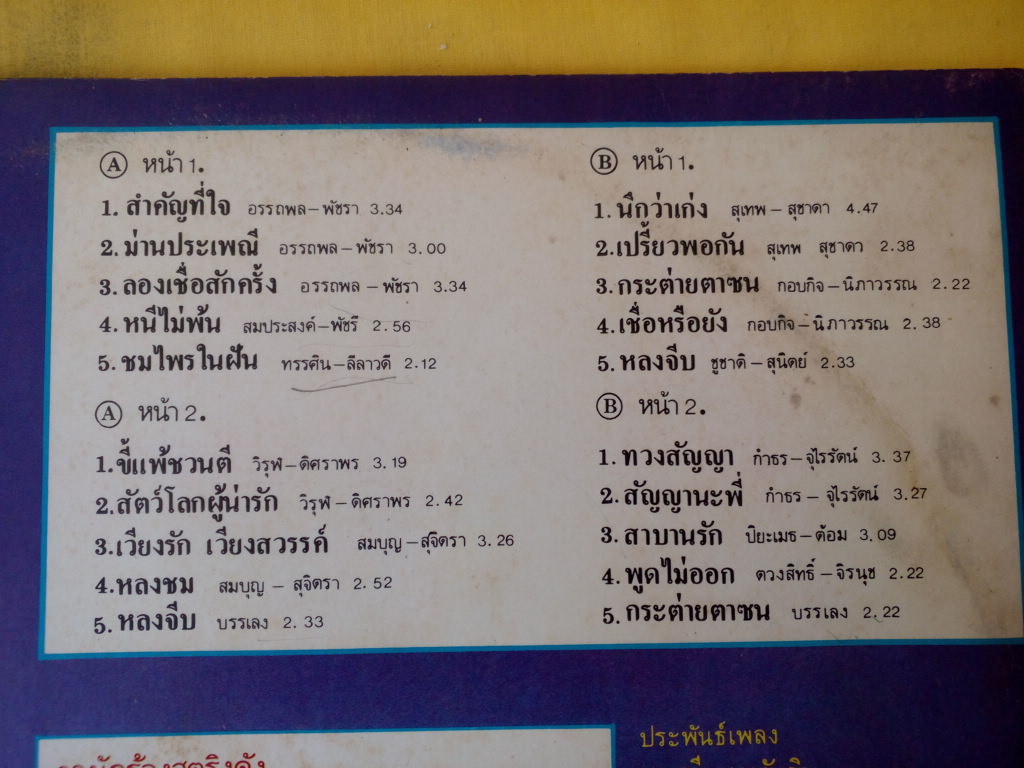 Ⓐ หน้า 1.
1. สำคัญที่ใจ อรรถพล – พัชรา 3.34
2. ม่านประเพณี อรรถพล – พัชรา 3.00
3. ลองเชื่อสักครั้ง อรรถพล – พัชรา 3.34
4. หนีไม่พ้น สมประสงค์ – พัชรี 2.56
5. ชมไพรในฝัน ทรรศิน – ลีลาวดี 2.12
Ⓐ หน้า 2.
1. ขี้แพ้ชวนตี วิรุฬ – ดิศราพร 3.19
2. สัตว์โลกผู้น่ารัก วิรุฬ – ดิศราพร 2.42
3. เวียงรัก เวียงสวรรค์ สมบุญ – สุจิตรา 3.26
4. หลงชม สมบุญ – สุจิตรา 2.52
5. หลงจีบ บรรเลง 2.33
Ⓑ หน้า 1.
1. นึกว่าเก่ง สุเทพ – สุชาดา 4.47
2. เปรี้ยวพอกัน สุเทพ สุชาดา 2.38
3. กระต่ายตาซน กอบกิจ – นิภาวรรณ 2.22
4. เชื่อหรือยัง กอบกิจ – นิภาวรรณ 2.38
5. หลงจีบ ชูชาติ – สุนิตย์ 2.33
Ⓑ หน้า 2.
1. ทวงสัญญา กำธร – จุไรรัตน์ 3.37
2. สัญญานะพี่ กำธร – จุไรรัตน์ 3.27
3. สาบานรัก ปิยะเมธ – ต้อม 3.09
4. พูดไม่ออก ดวงสิทธิ์ – จิรนุช 2.22
5. กระต่ายตาซน บรรเลง 2.22
ประพันธ์เพลง